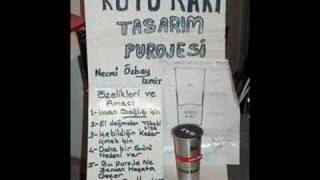 KUTU RAKI
TASARIM
PUROJESİ
Necmi Özbay
İzmir
Özelikleri ve
Amacı
1- insan Sağlığı için
2- El değmeden Tüketi
3- içebildiğin Kadar
içmek için
4- Daha bir Sürü
Nedeni var
5- Bu puroje Ne
Zaman Hayata
Geçer